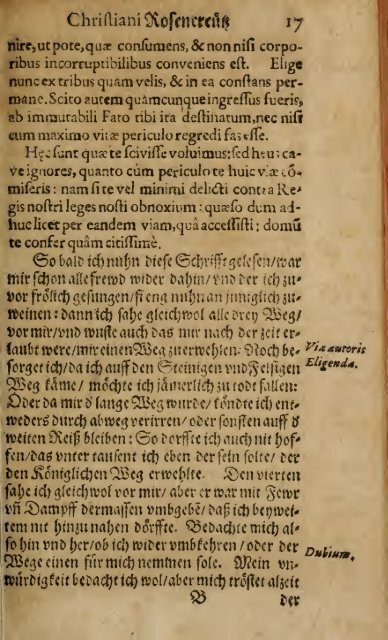 Christiani Rosencreütz 17
nire, ut pote, quæ consumens, & non nisi corpo-
ribus incorruptibilibus conveniens est. Elige
nunc ex tribus quam velis, & in ea constans per-
mane. Scito autem quamcunque ingressus fueris,
ab immutabili Fato tibi ita destinatum, nec nisi
cum maximo vitæ periculo regredi fas esse.
Hęc sunt quæ te scivisse voluimus: sed heus ca-
ve ignores, quanto cùm periculo te huic viæ cō-
miseris: nam si te vel minimi delicti contra Re-
gis nostri leges nosti obnoxium: quæso dum ad-
huc licet per eandem viam, quâ accessisti: domū
te confer quàm citissimè.
So bald ich nuhn diese Schrifft gelesen/ war
mir schon alle frewd wider dahin/ vnd der ich zu-
vor frölich gesungen/ fieng nuhn an juniglich zu-
weinen: dann ich sahe gleichwol alle drey Weg/
vor mir/ vnd wuste auch das mir nach der zeit er-
laubt were/ mir einen Weg zuerwehlen. Noch be-
Via autoris
sorget ich/ da ich auff den Steinigen vnd Felsigen
Eligenda.
Weg käme/ möchte ich jämerlich zu todt fallen:
Oder da mir ď lange Weg wurde/ köndte ich ent-
weders durch abweg verirren/ oder sonsten auff ď
weiten Reiß bleiben: So dorffte ich auch nit hof-
fen/ das vnter tausent ich eben der sein solte/ der
den Königlichen Weg erwehlte. Den vierten
sahe ich gleichwol vor mir/ aber er war mit Fewr
vñ Dampff dermassen vmbgebē/ daß ich beywei-
tem nit hinzu nahen dörffte. Bedachte mich al-
so hin vnd her/ ob ich wider vmbkehren/ oder der
Wege einen für mich nemmen solc. Mein vn-
Dubium.
würdigkeit bedacht ich wol/ aber mich tröstet alzeit
B der